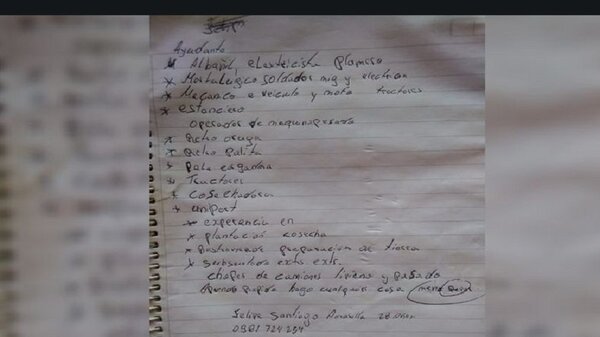 Ayudante
* Albañil electricista plomero
* Metalurgico soldador mig y electrica
* Mecanico e veiculo y moto tractores
* estanciero
operador de maquina pesada
* Retro oruga
* Retro Palita
* pala cargadora
* Tractores
* Cosechadora
* uniport
* experiencia en
* plantacion cosecha
* preparacion de tierra
* subsoladora exts. exts.
chofer de camiones liviano y pesado
hago cualquier cosa menos
Felipe Santiago 28 años
0981 724 254